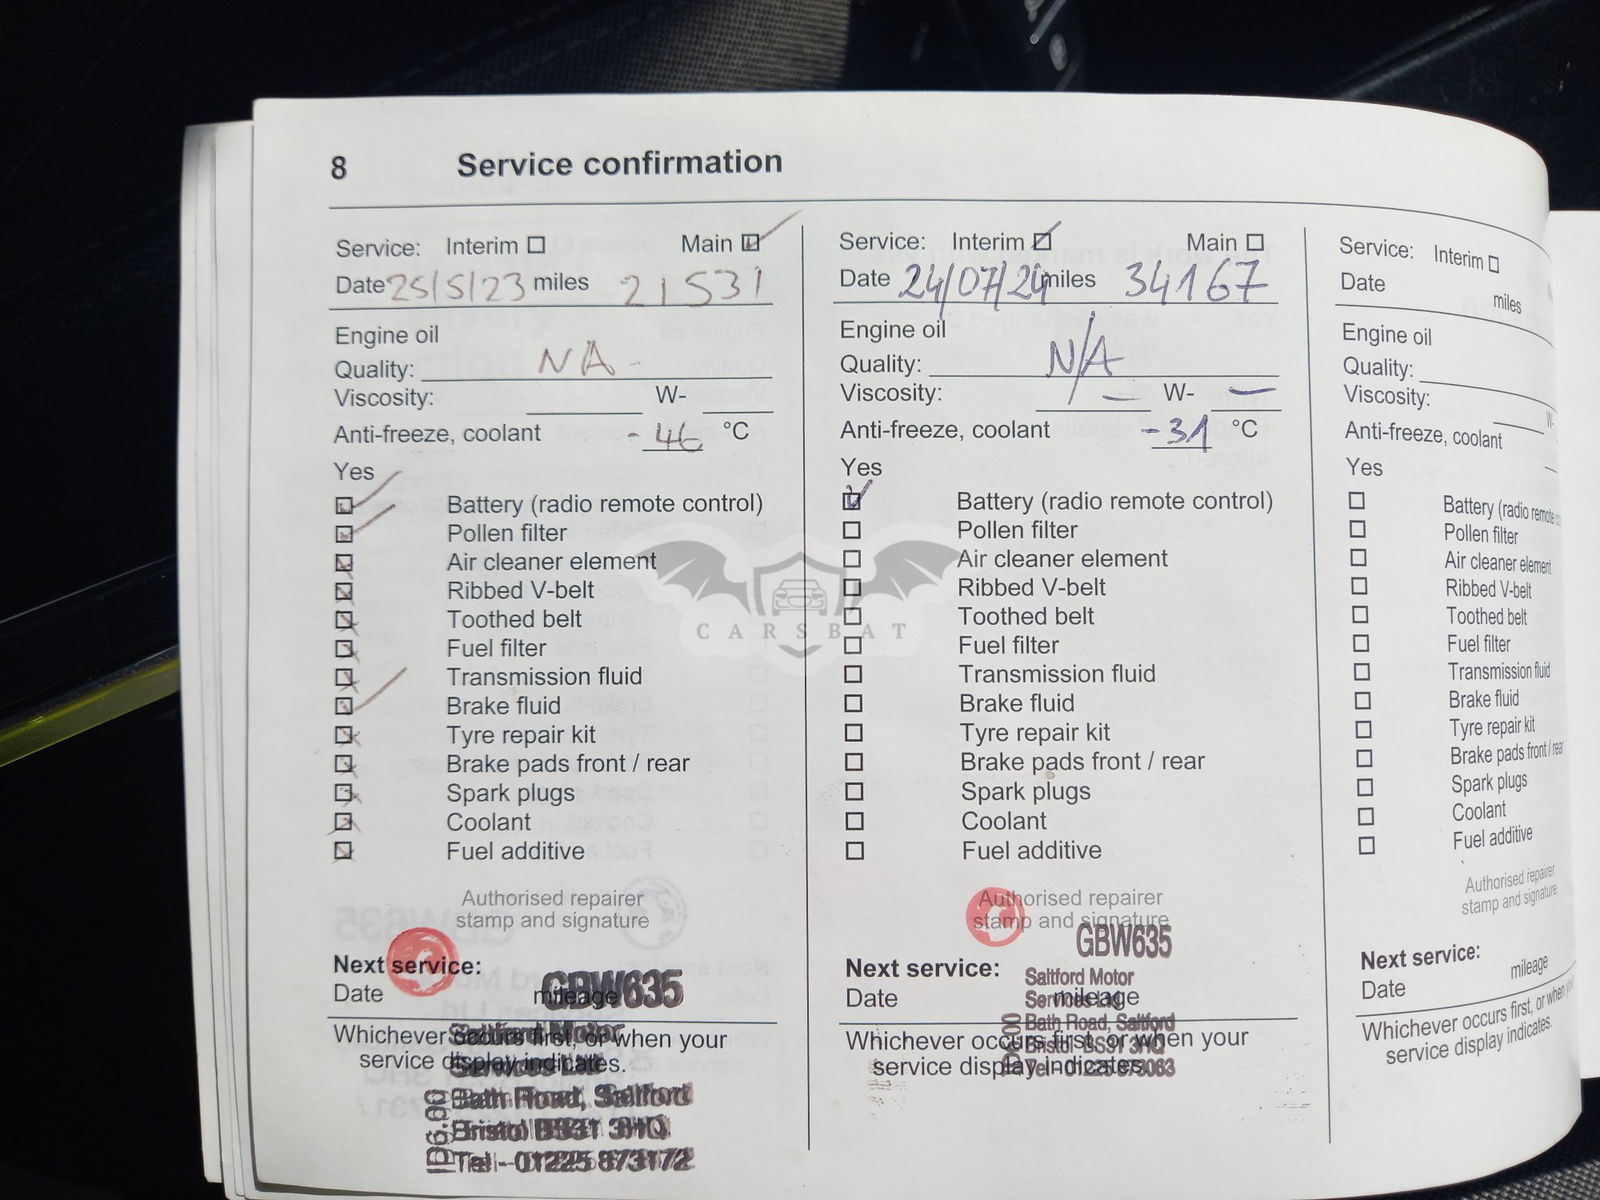 8 Service confirmation
Service: Interim Main
Date 25/5/23 miles 21531
Engine oil
Quality: NA-
Viscosity: W-
Anti-freeze, coolant -46 °C
Yes
Battery (radio remote control)
Pollen filter
Air cleaner element
Ribbed V-belt
Toothed belt
Fuel filter
Transmission fluid
Brake fluid
Tyre repair kit
Brake pads front / rear
Spark plugs
Coolant
Fuel additive
Authorised repairer
stamp and signature
Next service:
Date mileage
GBW635
Whichever occurs first, or when your
service display indicates.
Saltford Motor
Services Ltd
Bath Road, Saltford
Bristol BS31 3HQ
Tel - 01225 873172
Service: Interim Main
Date 24/07/24 miles 34167
Engine oil
Quality: N/A
Viscosity: — W- —
Anti-freeze, coolant -31 °C
Yes
Battery (radio remote control)
Pollen filter
Air cleaner element
Ribbed V-belt
Toothed belt
Fuel filter
Transmission fluid
Brake fluid
Tyre repair kit
Brake pads front / rear
Spark plugs
Coolant
Fuel additive
Authorised repairer
stamp and signature
GBW635
Next service:
Date mileage
Saltford Motor
Services Ltd
Bath Road, Saltford
Bristol BS31 3HQ
Whichever occurs first, or when your
service display indicates.
Service: Interim
Date miles
Engine oil
Quality:
Viscosity: W-
Anti-freeze, coolant
Yes
Battery (radio remote
Pollen filter
Air cleaner element
Ribbed V-belt
Toothed belt
Fuel filter
Transmission fluid
Brake fluid
Tyre repair kit
Brake pads front / rear
Spark plugs
Coolant
Fuel additive
Authorised repairer
stamp and signature
Next service:
Date mileage
Whichever occurs first, or when
service display indicates.
CARSBAT